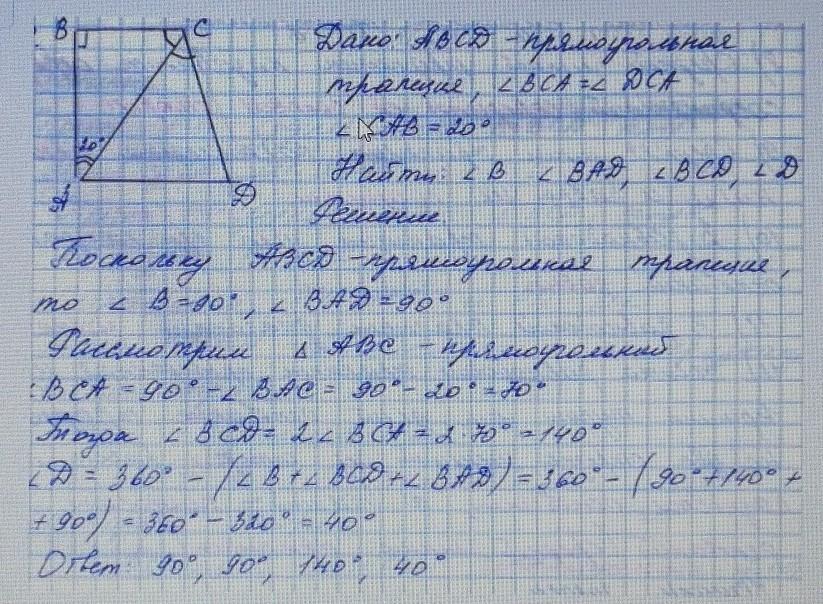 B C
20°
A D
Дано: ABCD - прямоугольная
трапеция, ∠BCA = ∠DCA
∠CAB = 20°
Найти: ∠B ∠BAD, ∠BCD, ∠D
Решение
Поскольку ABCD - прямоугольная трапеция,
то ∠B = 90°, ∠BAD = 90°
Рассмотрим Δ ABC - прямоугольный
BCA = 90° - ∠BAC = 90° - 20° = 70°
Тогда ∠BCD = 2∠BCA = 2·70° = 140°
∠D = 360° - (∠B + ∠BCD + ∠BAD) = 360° - (90° + 140° +
+ 90°) = 360° - 320° = 40°
Ответ: 90°, 90°, 140°, 40°